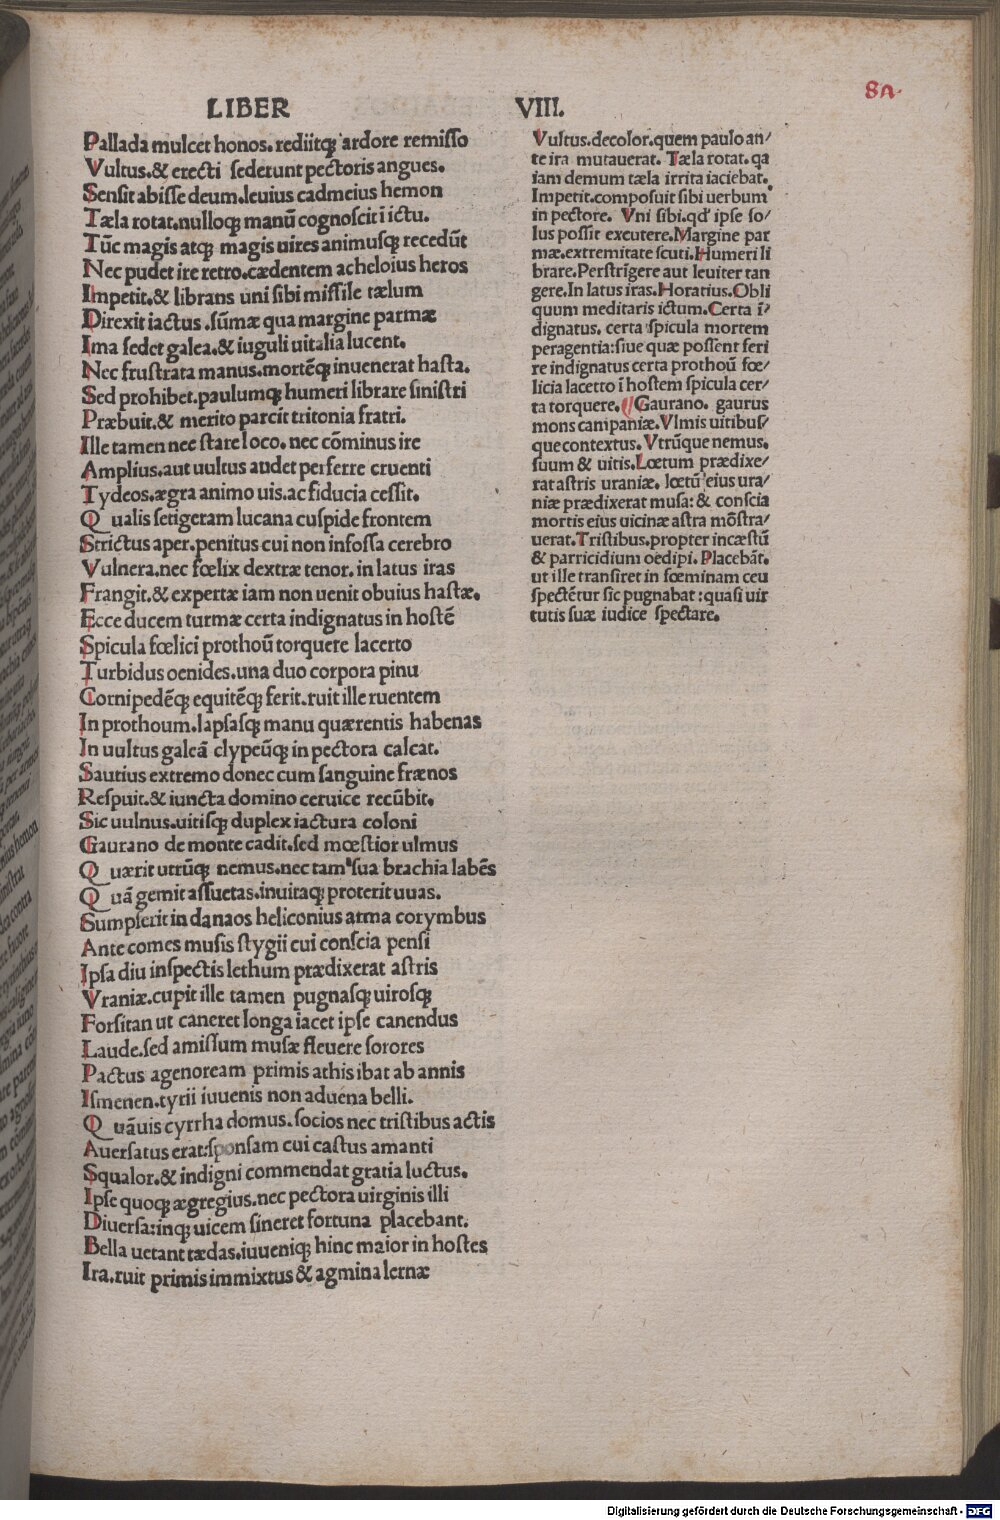 LIBER VIII.
8a.
Pallada mulcet honos. rediitqꝫ ardore remisso
Vultus.& erecti sederunt pectoris angues.
Sensit abisse deum.leuius cadmeius hemon
Tæla rotat.nulloqꝫ manū cognoscit ī ictu.
Tūc magis atqꝫ magis uires animusqꝫ recedūt
Nec pudet ire retro.cædentem acheloius heros
Impetit.& librans uni sibi missile tælum
Direxit iactus .sūmæ qua margine parmæ
Ima sedet galea.& iuguli uitalia lucent.
Nec frustrata manus.mortēqꝫ inuenerat hasta.
Sed prohibet.paulumqꝫ humeri librare sinistri
Præbuit.& merito parcit tritonia fratri.
Ille tamen nec stare loco. nec cōminus ire
Amplius.aut uultus audet perferre cruenti
Tydeos.ægra animo uis.ac fiducia cessit.
Qualis setigeram lucana cuspide frontem
Strictus aper.penitus cui non infossa cerebro
Vulnera.nec fœlix dextræ tenor. in latus iras
Frangit.& expertæ iam non uenit obuius hastæ.
Ecce ducem turmæ certa indignatus in hostē
Spicula fœlici prothoū torquere lacerto
Turbidus oenides.una duo corpora pinu
Cornipedēqꝫ equitēqꝫ ferit.ruit ille ruentem
In prothoum.lapsasqꝫ manu quærentis habenas
In uultus galeā clypeūqꝫ in pectora calcat.
Sautius extremo donec cum sanguine frænos
Respuit.& iuncta domino ceruice recūbit.
Sic uulnus.uitisqꝫ duplex iactura coloni
Gaurano de monte cadit.sed mœstior ulmus
Quærit utrūqꝫ nemus.nec tam sua brachia labēs
Quā gemit assuetas.inuitaqꝫ proterit uuas.
Sumpserit in danaos heliconius arma corymbus
Ante comes musis stygii cui conscia pensi
Ipsa diu inspectis lethum prædixerat astris
Vraniæ.cupit ille tamen pugnasqꝫ uirosqꝫ
Forsitan ut caneret longa iacet ipse canendus
Laude.sed amissum musæ fleuere sorores
Pactus agenoream primis athis ibat ab annis
Ismenen.tyrii iuuenis non aduena belli.
Quāuis cyrrha domus.socios nec tristibus actis
Auersatus erat:sponsam cui castus amanti
Squalor.& indigni commendat gratia luctus.
Ipse quoqꝫ ægregius.nec pectora uirginis illi
Diuersa:inqꝫ uicem sineret fortuna placebant.
Bella uetant tædas.iuueniqꝫ hinc maior in hostes
Ira.ruit primis immixtus & agmina lernæ
Vultus.decolor.quem paulo an/
te ira mutauerat. Tæla rotat. qa
iam demum tæla irrita iaciebat.
Impetit.composuit sibi uerbum
in pectore. Vni sibi.qd' ipse so/
lus possit excutere.Margine par
mæ.extremitate scuti.Humeri li
brare.Perstrigere aut leuiter tan
gere.In latus iras.Horatius.Obli
quum meditaris ictum.Certa ī/
dignatus. certa spicula mortem
peragentia:siue quæ possent feri
re indignatus certa prothoū fœ/
licia lacetto ī hostem spicula cer/
ta torquere. ¶Gaurano. gaurus
mons canipaniæ.Vlmis uitibus/
que contextus. Vtrūque nemus.
suum & uitis.Lœtum prædixe/
rat astris uraniæ. lœtū eius ura/
niæ prædixerat musa: & conscia
mortis eius uicinæ astra mōstra/
uerat.Tristibus.propter incæstū
& parricidium oedipi. Placebāt.
ut ille transiret in fœminam ceu
spectētur sic pugnabat :quasi uir
tutis suæ iudice spectare.
Digitalisierung gefördert durch die Deutsche Forschungsgemeinschaft - DFG